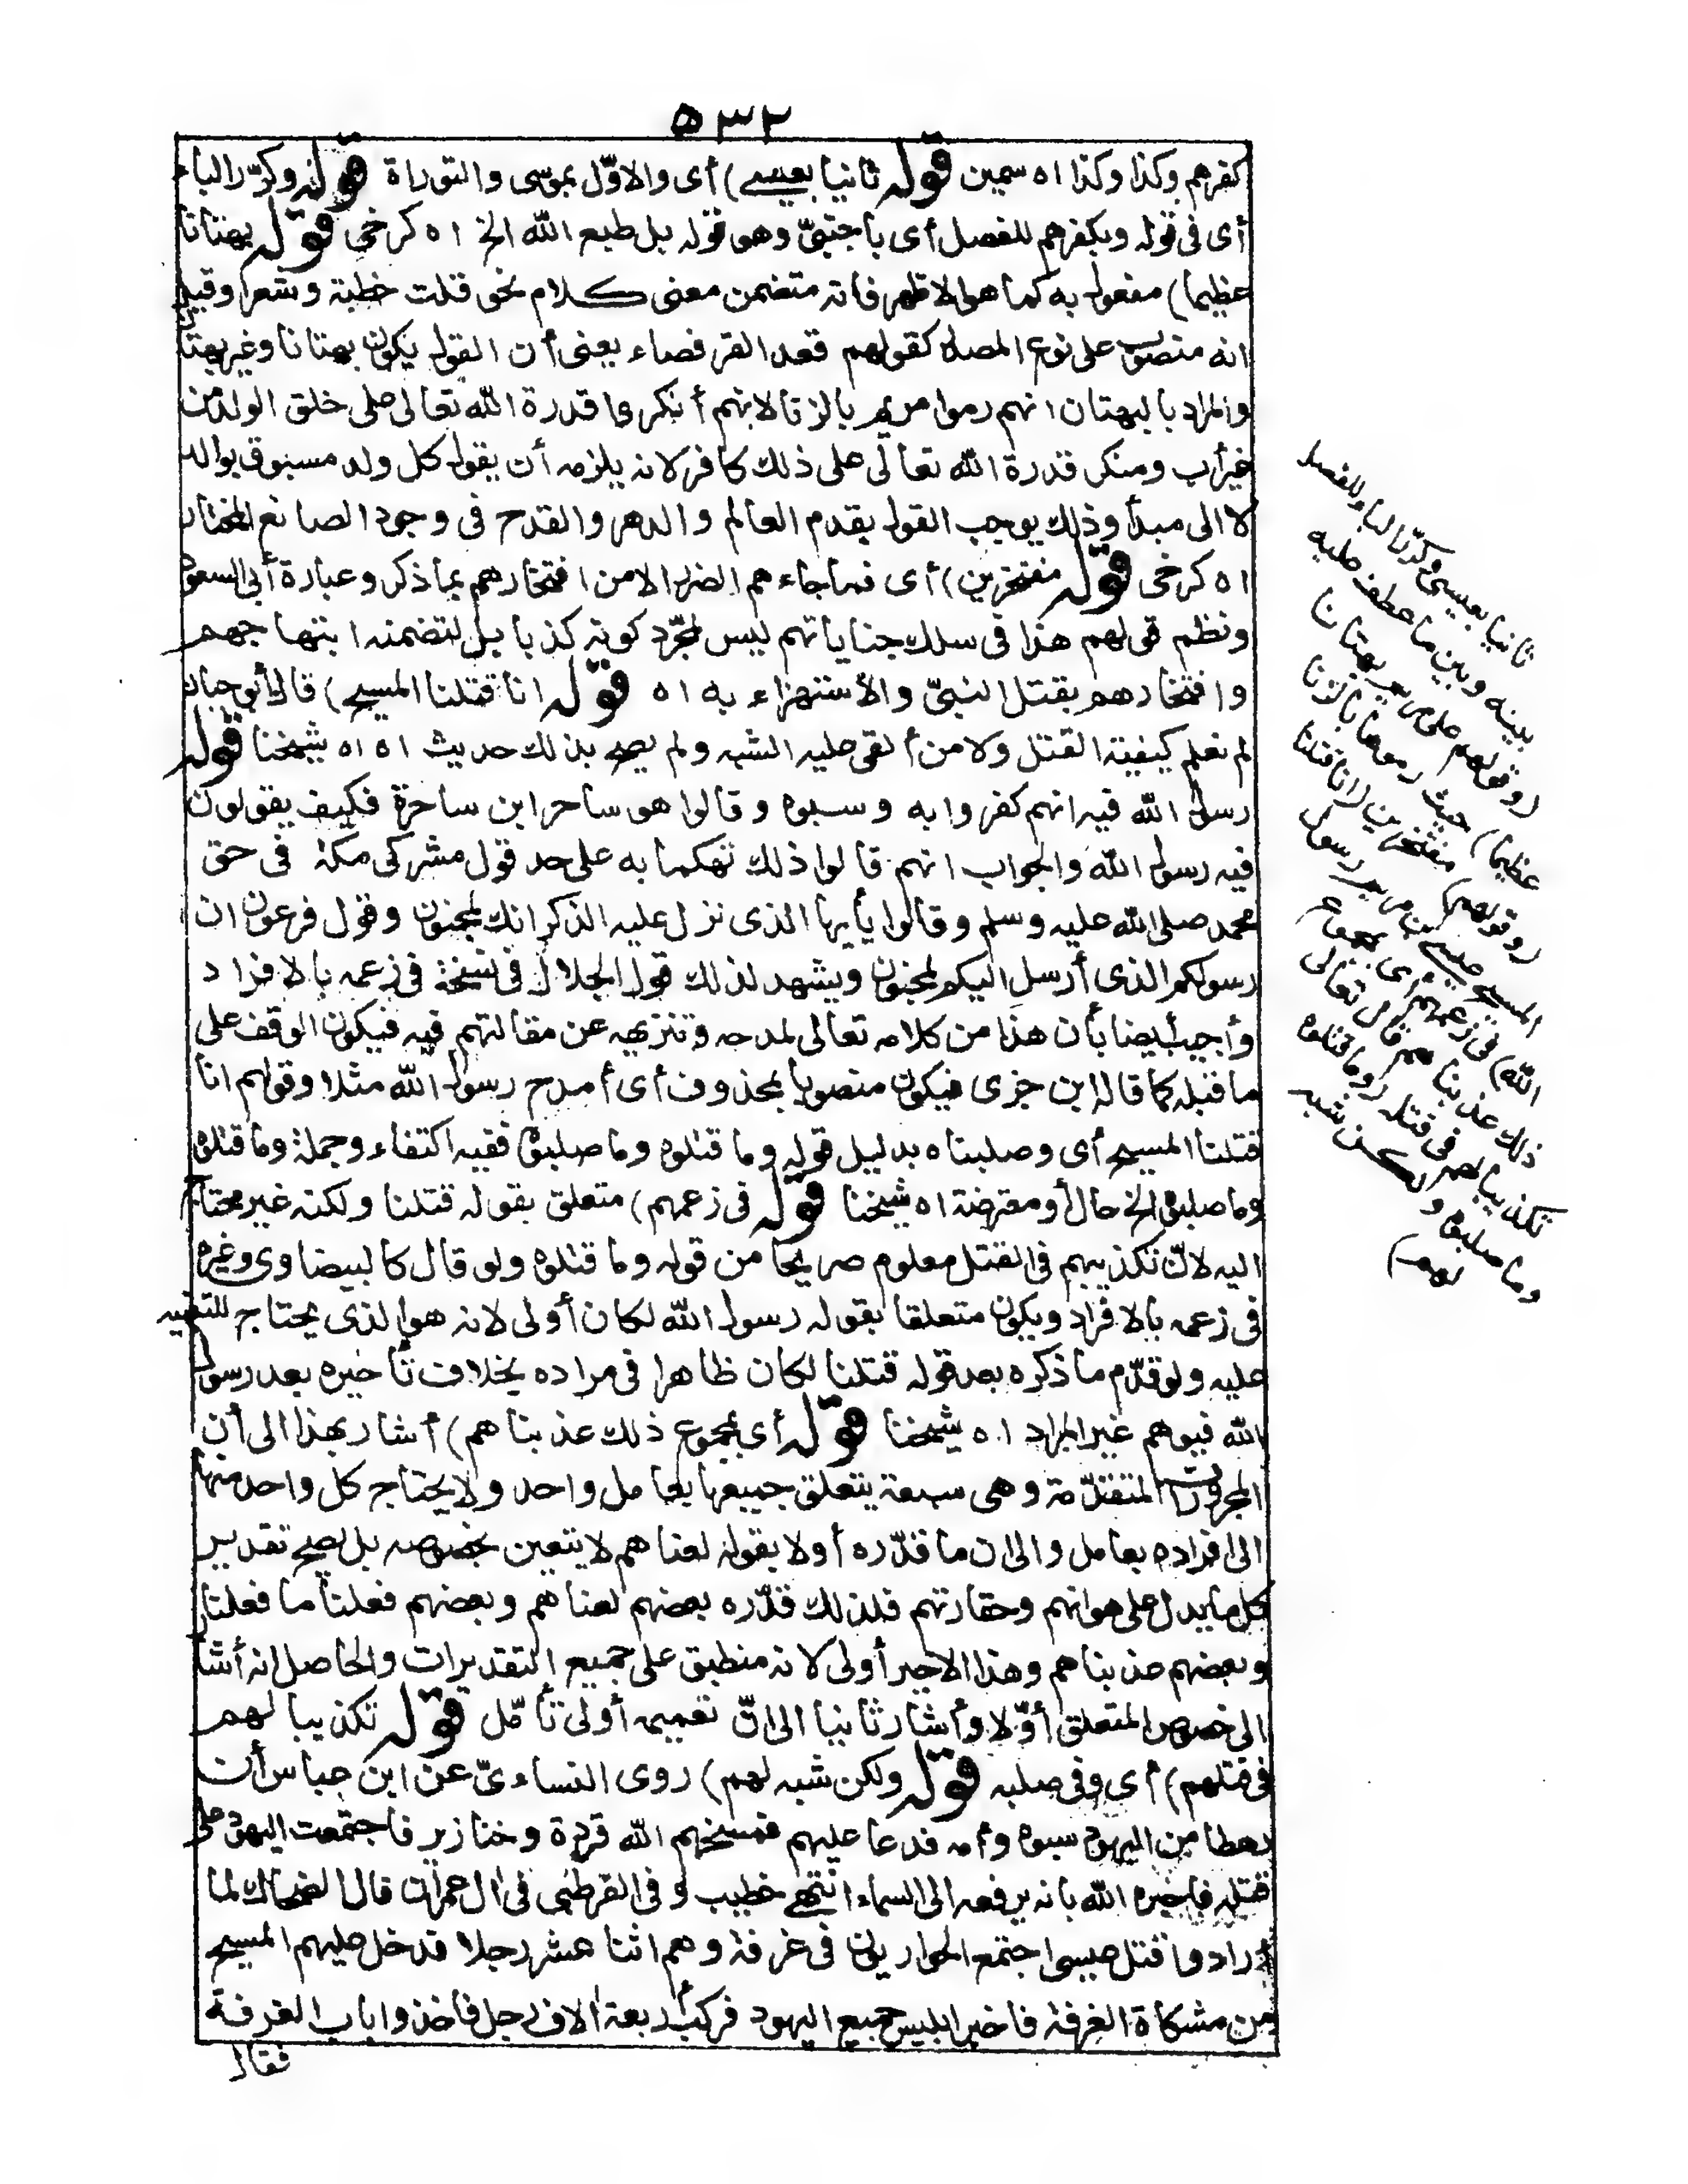 ٥٣٢
كفرهم وكذا وكذا اه سمين قوله ثانيا بعيسى) أى والاوّل بموسى والتوراة قوله وكرّر الباء
أى فى قوله وبكفرهم للفصل أى باجنبىّ وهو قوله بل طبع الله الخ اه كرخى قوله بهتانا
عظيما) مفعول به كما هو الاظهر فانه متضمن معنى كلام نحو قلت خطبة وشعرا وقيل
انه منصوب على نوع المصدر كقولهم قعد القرفصاء يعنى أن القول يكون بهتانا وغير بهتان
والمراد بالبهتان انهم رموا مريم بالزنا لانهم أنكروا قدرة الله تعالى على خلق الولد من
غير أب ومنكر قدرة الله تعالى على ذلك كافر لانه يلزمه أن يقول كل ولد مسبوق بوالد
لا الى مبدأ وذلك يوجب القول بقدم العالم والدهر والقدح فى وجود الصانع المختار
اه كرخى قوله مفتخرين) أى فما جاءهم الضرر الا من افتخارهم بما ذكر وعبارة أبى السعود
ونظم قولهم هذا فى سلك جناياتهم ليس لمجرّد كونه كذبا بل لتضمنه ابتهاجهم
وافتخارهم بقتل النبىّ والاستهزاء به اه قوله انا قتلنا المسيح) قال أبو حيان
لم نعلم كيفية القتل ولا من ألقى عليه الشبه ولم يصح بذلك حديث اه اه شيخنا قوله
رسول الله فيه انهم كفروا به وسبوه وقالوا هو ساحر ابن ساحرة فكيف يقولون
فيه رسول الله والجواب انهم قالوا ذلك تهكما به على حد قول مشركى مكة فى حق
محمد صلى الله عليه وسلم وقالوا يأيها الذى نزل عليه الذكر انك لمجنون وقول فرعون ان
رسولكم الذى أرسل اليكم لمجنون ويشهد لذلك قول الجلال فى نسخة فى زعمه بالافراد
وأجيب أيضا بأن هذا من كلامه تعالى لمدحه وتنزيهه عن مقالتهم فيه فيكون الوقف على
ما قبله كما قاله ابن جزى فيكون منصوبا بمحذوف أى أمدح رسول الله مثلا وقولهم انا
قتلنا المسيح أى وصلبناه بدليل قوله وما قتلوه وما صلبوه ففيه اكتفاء وجملة وما قتلوه
وما صلبوه الخ حال أو معترضة اه شيخنا قوله فى زعمهم) متعلق بقوله قتلنا ولكنه غير محتاج
اليه لانّ تكذيبهم فى القتل معلوم صريحا من قوله وما قتلوه ولو قال كالبيضاوى وغيره
فى زعمه بالافراد ويكون متعلقا بقوله رسول الله لكان أولى لانه هو الذى يحتاج للتنبيه
عليه ولو قدّم ما ذكره بعد قوله قتلنا لكان ظاهرا فى مراده بخلاف تأخيره بعد رسول
الله فيوهم غير المراد اه شيخنا قوله أى بمجموع ذلك عذبناهم) أشار بهذا الى أن
المجرورات المتقدّمة وهى سبعة يتعلق جميعها بعامل واحد ولا يحتاج كل واحد منها
الى افراده بعامل والى ان ما قدّره أولا بقوله لعناهم لا يتعين بخصوصه بل يصح تقدير
كل ما يدل على هوانهم وحقارتهم فلذلك قدّره بعضهم لعناهم وبعضهم فعلنا ما فعلنا
وبعضهم عذبناهم وهذا الاخير أولى لانه منطبق على جميع التقديرات والحاصل انه أشار
الى خصوص المتعلق أوّلا وأشار ثانيا الى انّ تعميمه أولى تأمّل قوله تكذيبا لهم
فى قتلهم) أى وفى صلبه قوله ولكن شبه لهم) روى النساءىّ عن ابن عباس أن
رهطا من اليهود سبوه وأمه فدعا عليهم فمسخهم الله قردة وخنازير فاجتمعت اليهود على
قتله فاخبره الله بانه يرفعه الى السماء انتهى خطيب وفى القرطبى فى ال عمران قال الضحاك لما
أرادوا قتل عيسى اجتمع الحواريون فى غرفة وهم اثنا عشر رجلا فدخل عليهم المسيح
من مشكاة الغرفة فاخبر ابليس جميع اليهود فركب أربعة الاف رجل فاخذوا باب الغرفة
فقال
ثانيا بعيسى وكرّر الباء للفصل
بينه وبين ما عطف عليه
(وقولهم على مريم بهتانا
عظيما) حيث رموها بالزنا
(وقولهم) مفتخرين (انا قتلنا
المسيح عيسى بن مريم رسول
الله) فى زعمهم أى بمجموع
ذلك عذبناهم قال تعالى
تكذيبا لهم فى قتله (وما قتلوه
وما صلبوه ولكن شبه
لهم)